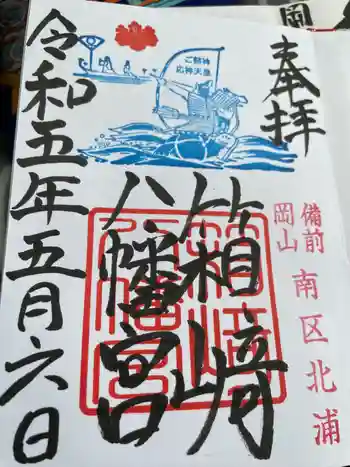 岡
奉拝
備前
岡山 南区北浦
ご祭神
応神天皇
箱崎
八幡宮
令和五年五月六日